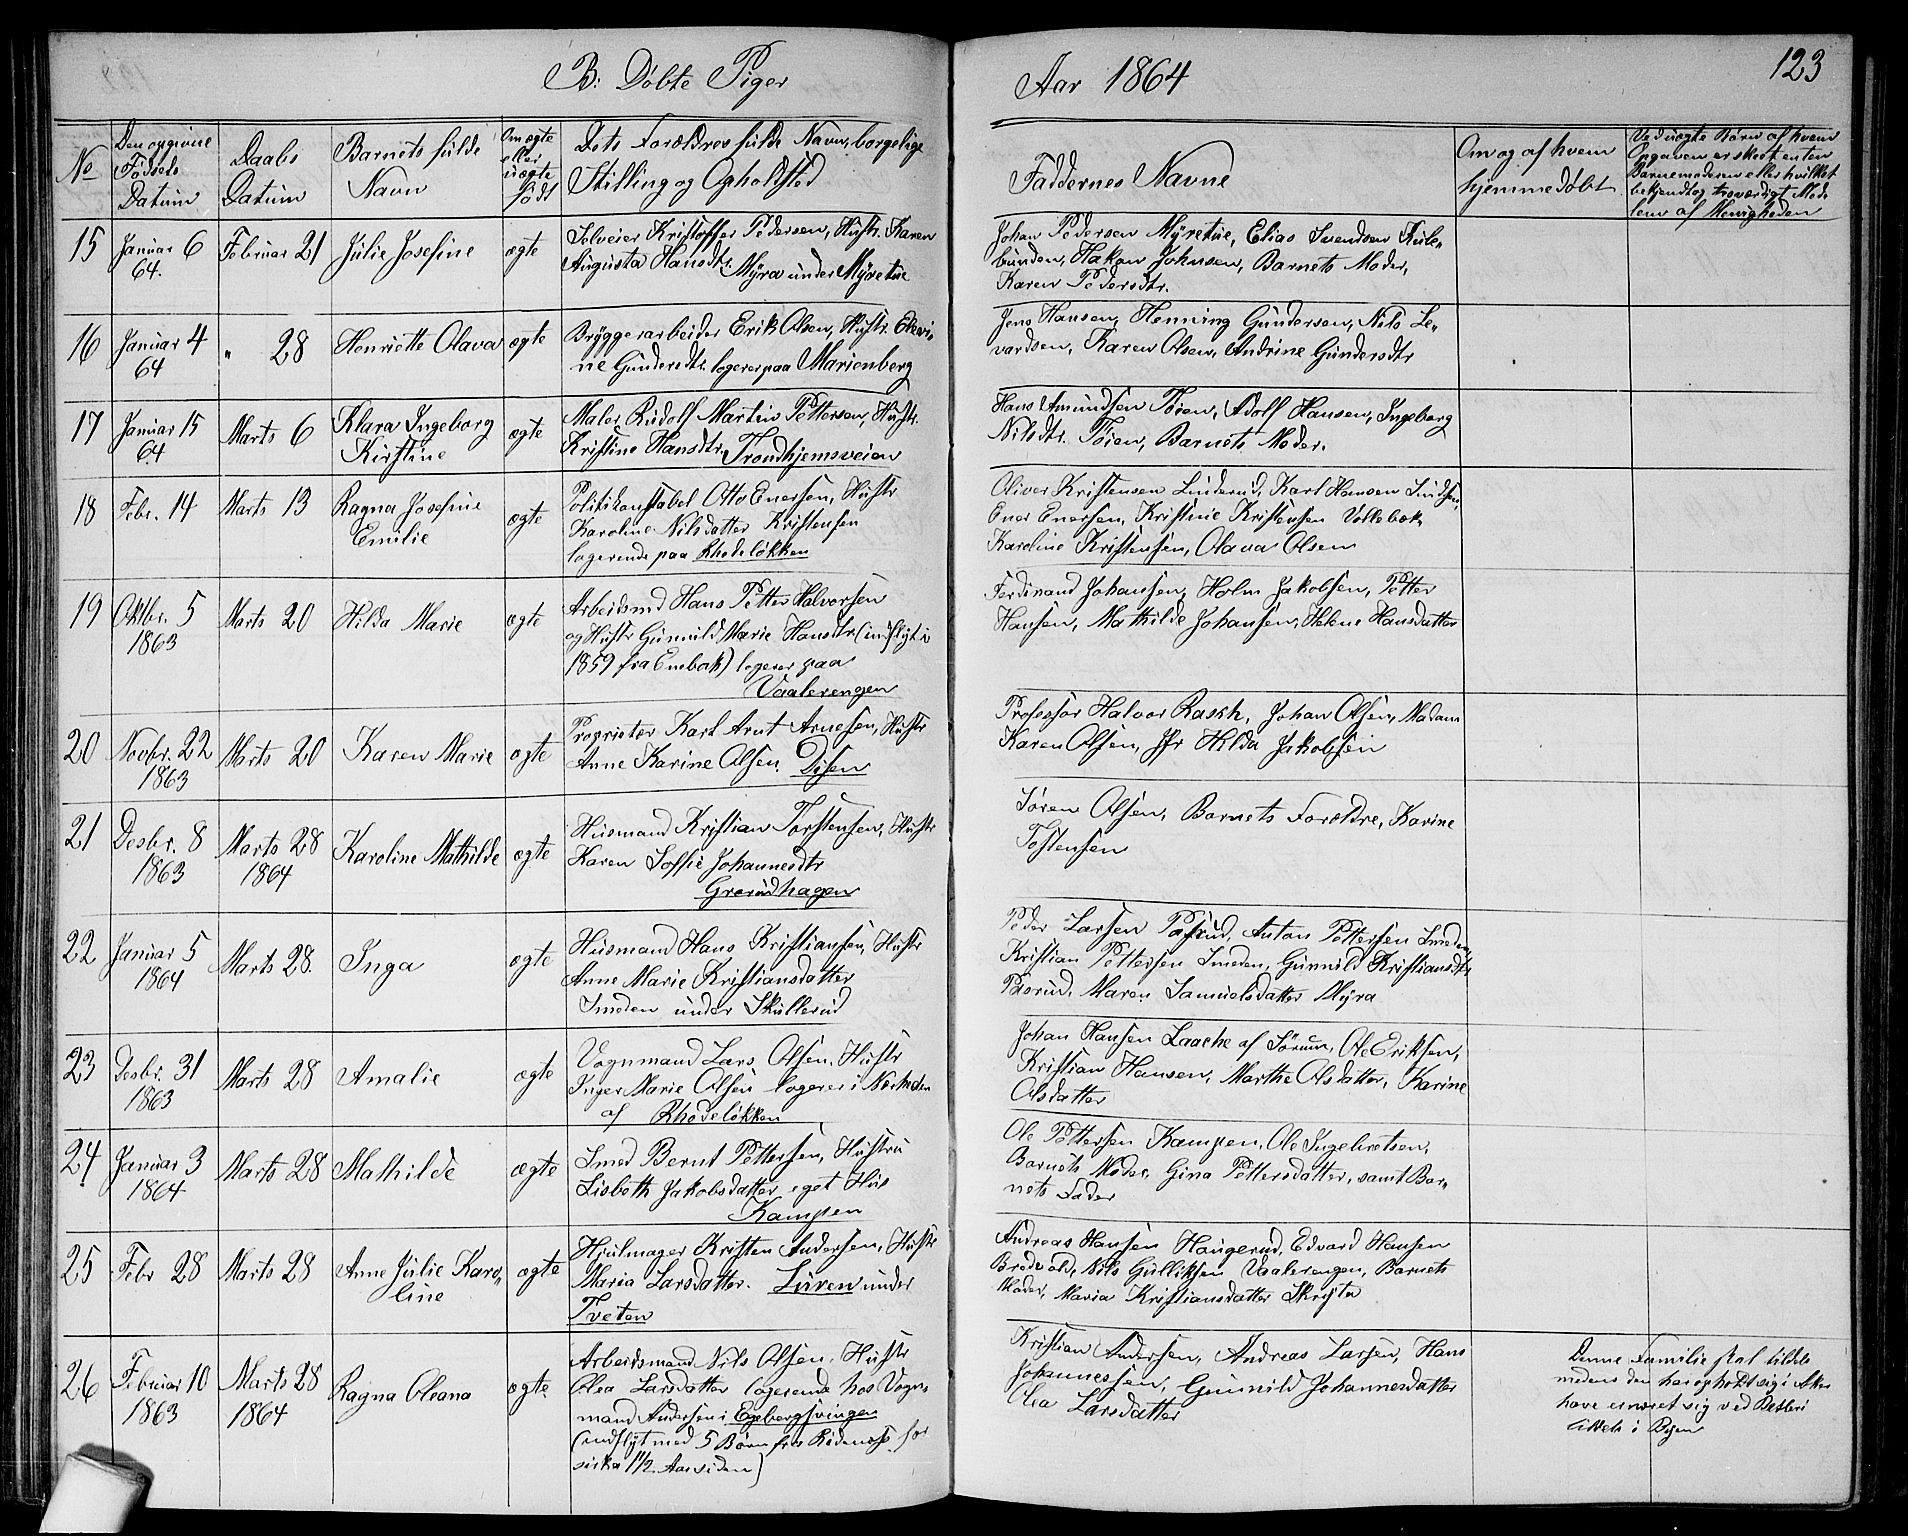 B: Døbte Piger
Aar 1864
123
No
Den opgivne
Fødsels
Datum
Daabs
Datum
Barnets fulde
Navn
Om ægte
eller
uægte
født
Dets Forældres fulde Navn, borgelige
Stilling og Opholdsted
Faddernes Navne
Om og af hvem
hjemmedøbt
Ved uægte Børn af hvem
Opgaven er skeet enten
Barnemoderen eller hvilket
bekjendt og troværdigt Med-
lem af Menigheden
15
Januar 6
64.
Februar 21
Julie Josefine
ægte
Selveier Kristoffer Pedersen, Hustr. Karen
Augusta Hansdtr. Myra under Myretue
Johan Pedersen Myretue, Elias Svendsen
bunden, Hakon Johnsen, Barnets Moder,
Karen Pedersdtr.
16
Januar 4
64
" 28
Henriette Olava
ægte
Bryggerarbeider Erik Olsen, Hustr.
ne Gundersdtr. logerer paa Marienberg
Jens Hansen, Henning Gundersen, Nils Le-
vardsen, Karen Olsen, Andrine Gundersdtr
17
Januar 15
64
Marts 6
Klara Ingeborg
Kirstine
ægte
Maler Rudolf Martin Pettersen, Hustr.
Kristine Hansdtr. Trondhjemsveien
Hans Amundsen Tøien, Adolf Hansen, Ingeborg
Nilsdtr. Tøien, Barnets Moder.
18
Febr. 14
Marts 13
Ragna Josefine
Emilie
ægte
Politikonstabel Otto Enersen, Hustr
Karoline Nilsdatter Kristensen
logerende paa Rhodeløkken
Oliver Kristensen Linderud, Karl Hansen
Ener Enersen, Kristine Kristensen Vollebæk
Karoline Kristensen, Olava Olsen
19
Oktbr. 5
1863
Marts 20
Hilda Marie
ægte
Arbeidsmd Hans Petter Halvorsen
og Hustr Gunnild Marie Hansdtr (indflyt i
1859 fra Enebak) logerer paa
Vaalerengen
Ferdinand Johansen, Holm Jakobsen, Petter
Hansen, Mathilde Johansen, Helene Hansdatter
20
Novbr. 22
1863
Marts 20
Karen Marie
ægte
Proprietær Karl Arnt Arnesen, Hustr
Anne Karine Olsen. Disen
Professor Halvor Rasch, Johan Olsen, Madam
Karen Olsen, Jfr Hilda Jakobsen
21
Desbr. 8
1863
Marts 28
1864
Karoline Mathilde
ægte
Husmand Kristian Torstensen, Hustr
Karen Soffie Johannesdtr
Grorudhagen
Søren Olsen, Barnets Forældre, Karine
Tostensen
22
Januar 5
1864
Marts 28.
Inga
ægte
Husmand Hans Kristiansen, Hustr
Anne Marie Kristiansdatter
Smeden under Skullerud
Peder Larsen Pasrud, Anton Pettersen Smeden
Kristian Pettersen Smeden, Gunnild Kristiansdtr
Pasrud, Maren Samuelsdatter Myra
23
Desbr. 31
1863
Marts 28
Amalie
ægte
Vognmand Lars Olsen, Hustr
Inger Marie Olsen logerer i Nærheden
af Rhodeløkken
Johan Hansen Laache af Sørum, Ole Eriksen,
Kristian Hansen, Marthe Olsdatter, Karine
Olsdatter
24
Januar 3
1864
Marts 28
Mathilde
ægte
Smed Bernt Pettersen, Hustru
Lisbeth Jakobsdatter eget Hus
Kampen
Ole Pettersen Kampen, Ole Ingebretsen,
Barnets Moder, Gina Pettersdatter, samt Bar-
nets Fader
25
Febr 28
Marts 28
Anne Julie Karo-
line
ægte
Hjulmager Kristen Andersen, Hustr
Maria Larsdatter. Luren under
Tveten
Andreas Hansen Haugerud, Edvard Hansen
Bredvold, Nils Gulliksen Vaalerengen, Barnets
Moder, Maria Kristiansdatter
26
Februar 10
1863
Marts 28
1864
Ragna Oleana
ægte
Arbeidsmand Nils Olsen, Hustr
Olea Larsdatter logerende hos Vogn-
mand Andersen i Egebergsvingen
(indflyt med 5 Børn fra Rødenæs for
sirka 1 1/2 Aar siden)
Kristian Andersen, Andreas Larsen, Hans
Johannessen, Gunnild Johannesdatter
Olea Larsdatter
Denne Familie skal tildels
medens den har opholdt sig i Aker
have ernæret sig ved Betleri
tildels i Byen